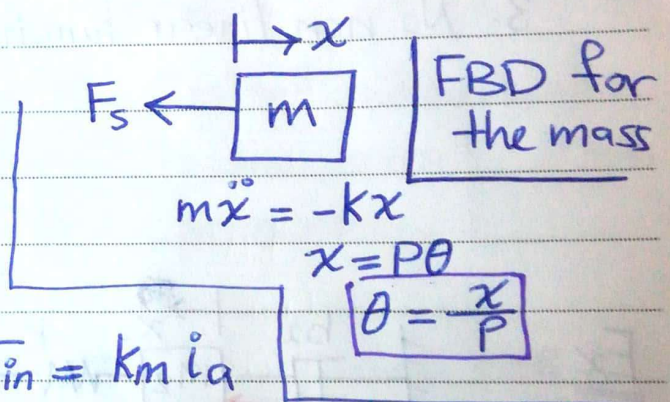 x
Fs
m
FBD for
the mass
mẍ = -kx
x = Pθ
θ = x/P
in = km ia